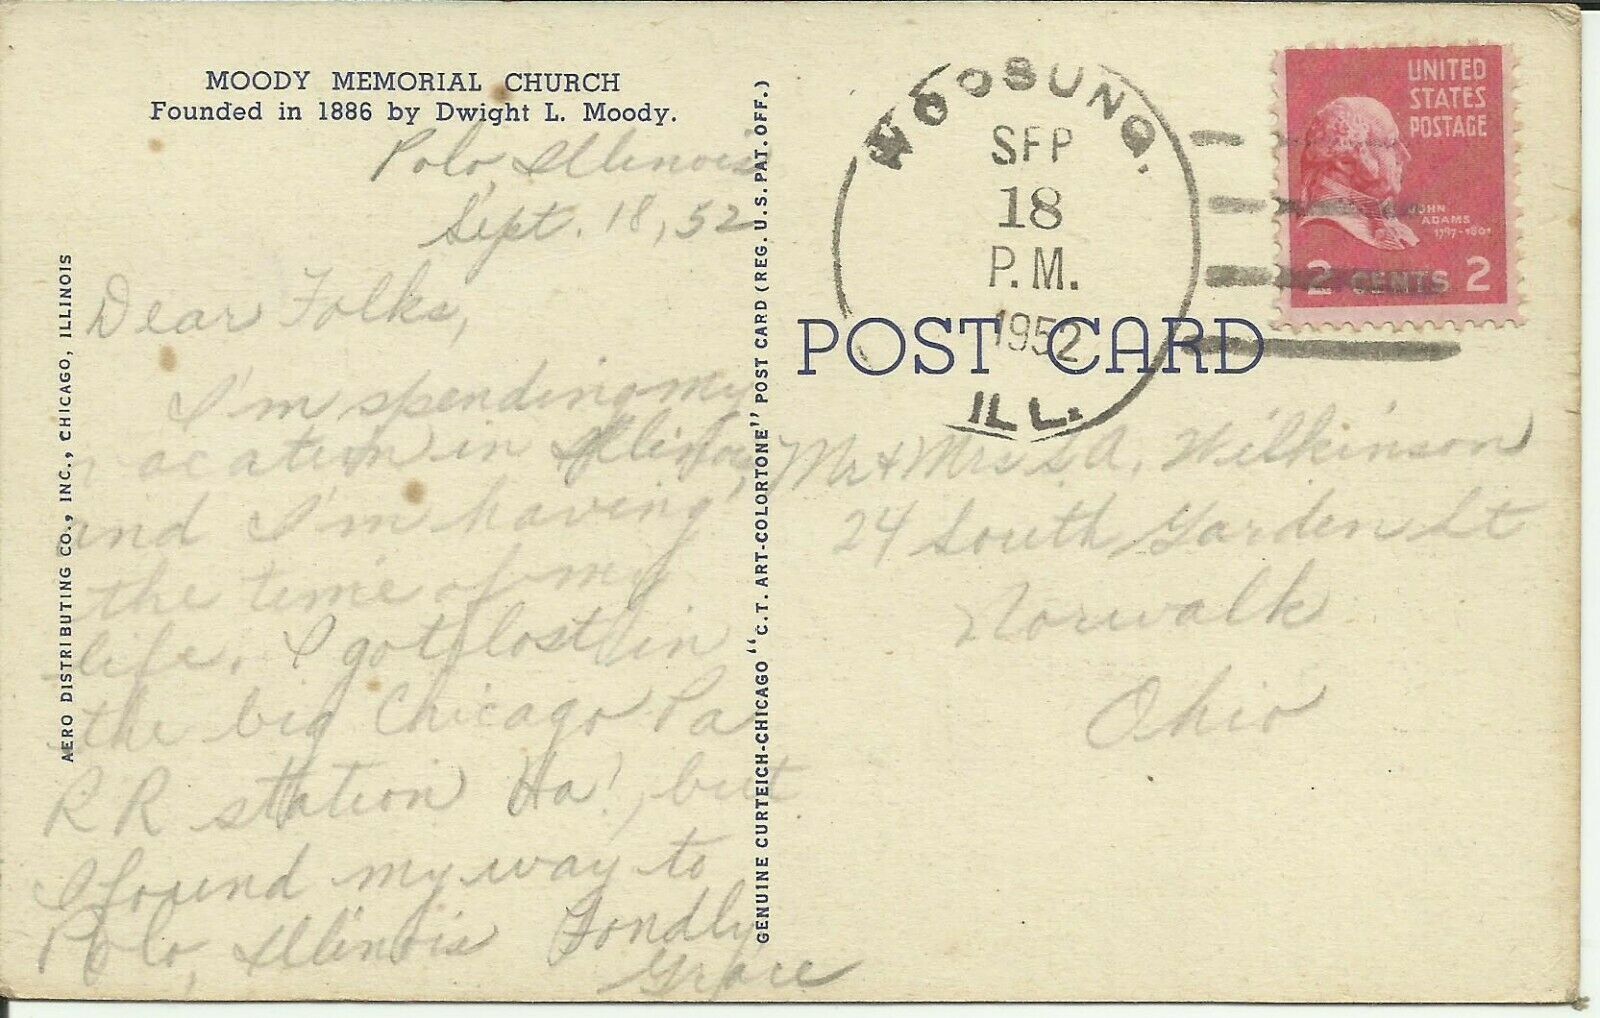 MOODY MEMORIAL CHURCH
Founded in 1886 by Dwight L. Moody.
Polo, Illinois
Sept. 18, 52
Dear Folks,
I'm spending my
vacation in Illinois,
and I'm having
the time of my
life. I got lost in
the big Chicago Pa
RR station Ha!, but
I found my way to
Polo, Illinois Fondly
Grace
AERO DISTRIBUTING CO., INC., CHICAGO, ILLINOIS
GENUINE CURTEICH-CHICAGO "C.T. ART-COLORTONE" POST CARD (REG. U.S. PAT. OFF.)
WOOSUNG,
SEP
18
P.M.
1952
ILL.
UNITED
STATES
POSTAGE
JOHN
ADAMS
1797-1801
2 CENTS 2
POST CARD
Mr & Mrs L A. Wilkinson
24 South Garden St
Norwalk
Ohio